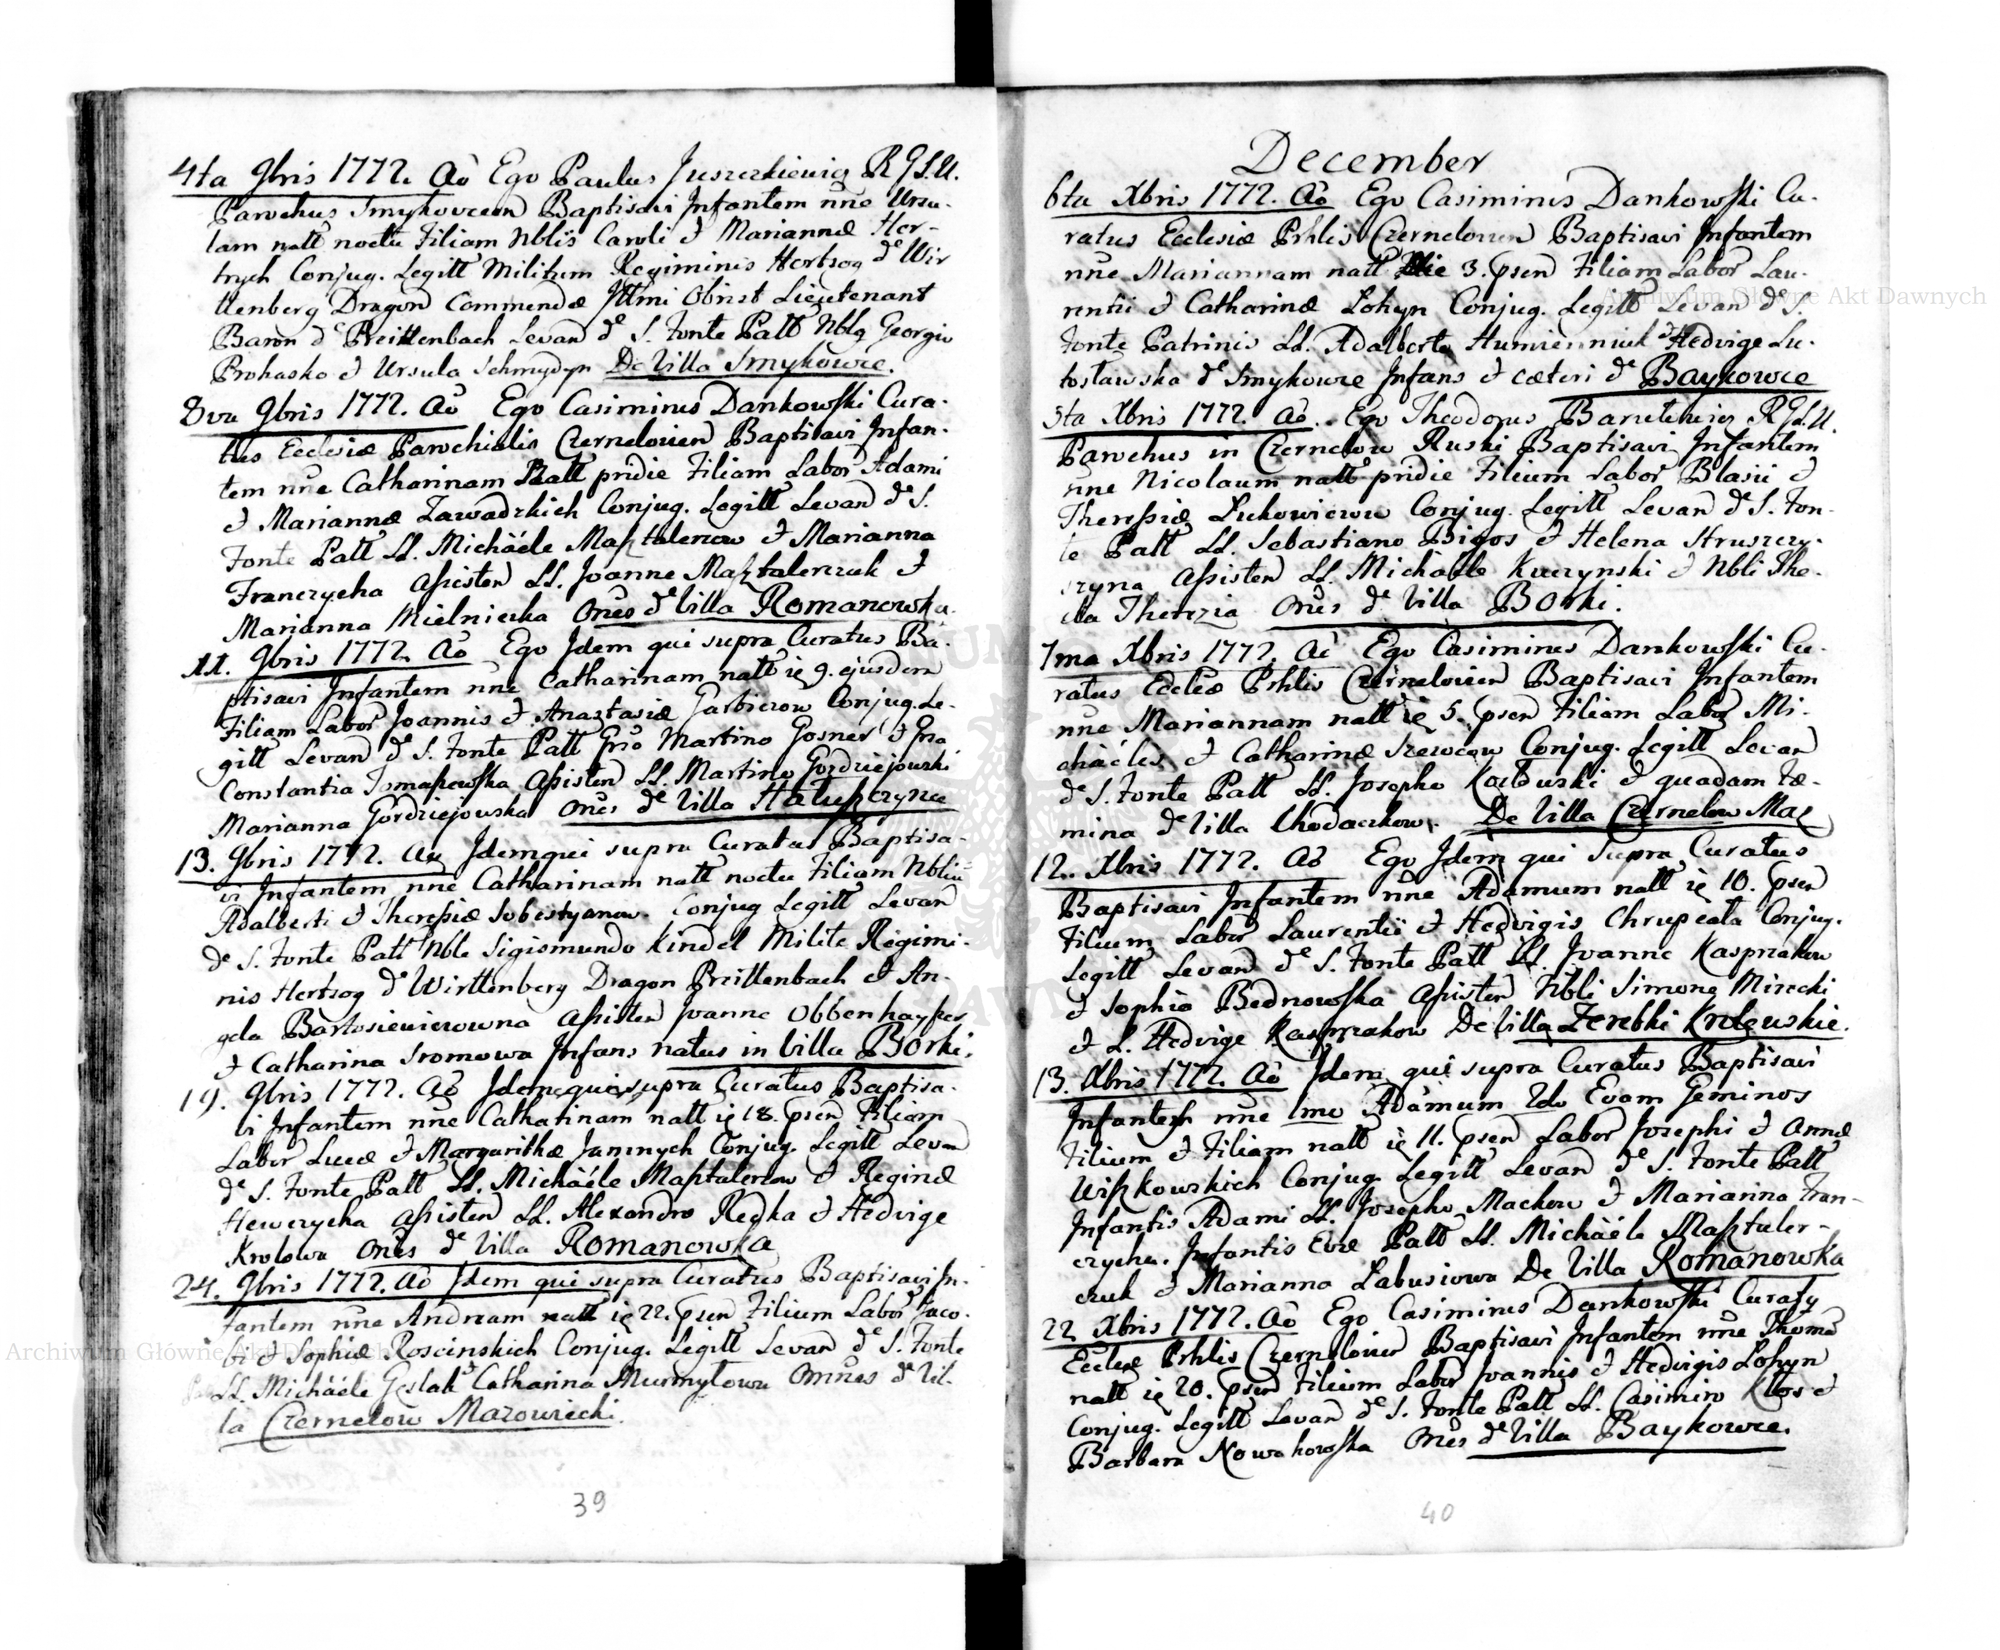 4ta 9bris 1772. Aõ Ego Paulus Juszczkiewicz R G S. U.
Parochus Smykovcen Baptisavi Infantem nñe Ursu-
lam natt noctu Filiam Nblis Caroli et Mariannæ Her-
trych Conjug. Legitt Militum Regiminis Hertzog de Wir
ttenberg Dragon Commendæ Illmi Obrist Lieutenant
Baron de Breittenbach Levan de S. Fonte Patt Nblg Georgio
Prohaska et Ursula Schmydyn De Villa Smykowce.
8va 9bris 1772. Aõ Ego Casimirus Dankowski Cura-
tus Ecclesiæ Parochialis Czernelovien Baptisavi Infan-
tem nñe Catharinam Natt pridie Filiam Labor Adami
et Mariannæ Zawadzkich Conjug. Legitt Levan de S.
Fonte Patt LL. Michäele Masztalerzow et Marianna
Franczycha Assisten LL. Joanne Masztalerczuk et
Marianna Mielniczka Oñes de Villa Romanowka.
11. 9bris 1772. Aõ Ego Idem qui supra Curatus Ba-
ptisavi Infantem nñe Catharinam natt ie 9. ejusdem
Filiam Labor Joannis et Anastasiæ Garbierow Conjug. Le-
gitt Levan de S. Fonte Patt Gño Martino Gosner et Gna
Constantia Tomaszewska Assisten LL. Martino Gozdziejowski
Marianna Gordziejowska Oñes de Villa Haluszczynce
13. 9bris 1772. Aõ Idem qui supra Curatus Baptisa-
vi Infantem nñe Catharinam natt noctu Filiam Nbliu
Adalberti et Theressiæ Sobestyanow. Conjug Legitt Levan
de S. Fonte Patt Nble Sigismundo Kindel Milite Regimi-
nis Hertzog de Wirttenberg Dragon Breittenbach et An-
gela Bartosiewiczowna Assisten Joanne Obbenhayser
et Catharina Sromowa Infans natus in Villa Borki.
19. 9bris 1772. Aõ Idem qui supra Curatus Baptisa-
vi Infantem nñe Catharinam natt ie 18. psen Filiam
Labor Lucæ et Margarithæ Jannych Conjug. Legitt Levan
de S. Fonte Patt LL. Michäéle Masztalerzow et Reginæ
Hewczycha Assisten LL. Alexandro Redka et Hedvige
Krolowa Oñes de Villa Romanowka
24. 9bris 1772. Aõ Idem qui supra Curatus Baptisavi In-
fantem nñe Andream natt ie 22. psen Filium Labor Jaco-
bi et Sophiæ Roscinskich Conjug. Legitt Levan de S. Fonte
LL. Michäéle Geslak et Catharina Murmylowa Omñes de Vil-
la Czernelow Mazowiecki.
39
December
6ta Xbris 1772. Aõ Ego Casimirus Dankowski Cu-
ratus Ecclesiæ Prhlis Czernelovien Baptisavi Infantem
nñe Mariannam natt Die 3. psen Filiam Labor Lau-
rentii et Catharinæ Lohyn Conjug. Legitt Levan de S.
Fonte Patrinis LL. Adalberto Humienniuk et Hedvige Lu-
toslawska de Smykowce Infans et cæteri de Baykowce
5ta Xbris 1772. Aõ. Ego Theodorus Baruchewicz R G S. U.
Parochus in Czernelow Ruski Baptisavi Infantem
nñe Nicolaum natt pridie Filium Labor Blasii et
Theressiæ Lukowiczow Conjug. Legitt Levan de S. Fon-
te Patt LL. Sebastiano Bigos et Helena Hruszczy-
czyna Assisten LL. Michäéle Kuczynski et Nbli The-
cla Therezia Oñes de Villa Borki.
7ma Xbris 1772. Aõ Ego Casimirus Dankowski Cu-
ratus Eccleæ Prhlis Czernelovien Baptisavi Infantem
nñe Mariannam natt ie 5. psen Filiam Labor Mi-
chäélis et Catharinæ Szewcow Conjug. Legitt Levan
de S. Fonte Patt LL. Josepho Kozlowski et quadam Fæ-
mina de Villa Chodaczkow. De Villa Czernelow Maz
12. Xbris 1772. Aõ Ego Idem qui Supra Curatus
Baptisavi Infantem nñe Adamum natt ie 10. psen
Filium Labor Laurentii et Hedvigis Chrupeata Conjug.
Legitt Levan de S. Fonte Patt LL. Joanne Kasprzakow
et Sophia Bednowska Assisten Nbli Simone Mirecki
et L. Hedvige Kasprzakow De Villa Zerebki Krolewskie.
13. Xbris 1772. Aõ Idem qui supra Curatus Baptisavi
Infantes nñe imo Adamum 2do Evam Geminos
Filium et Filiam natt ie 11. psen Labor Josephi et Annæ
Wiszkowskich Conjug Legitt Levan de S. Fonte Patt
Infantis Adami LL. Josepho Machow et Marianna Fran-
czycha. Infantis Evæ Patt LL. Michäéle Masztaler-
czuk et Marianna Labusiowa De Villa Romanowka
22 Xbris 1772. Aõ Ego Casimirus Dankowski Curatg
Eccleæ Prhlis Czernelovien Baptisavi Infantem nñe Thomã
natt ie 20. psen Filium Labor Joannis et Hedvigis Lohyn
Conjug. Legitt Levan de S. Fonte Patt LL. Casimiro Klos et
Barbara Nowakowska Oñes de Villa Baykowce.
40
Archiwum Główne Akt Dawnych
Archiwum Główne Akt Dawnych